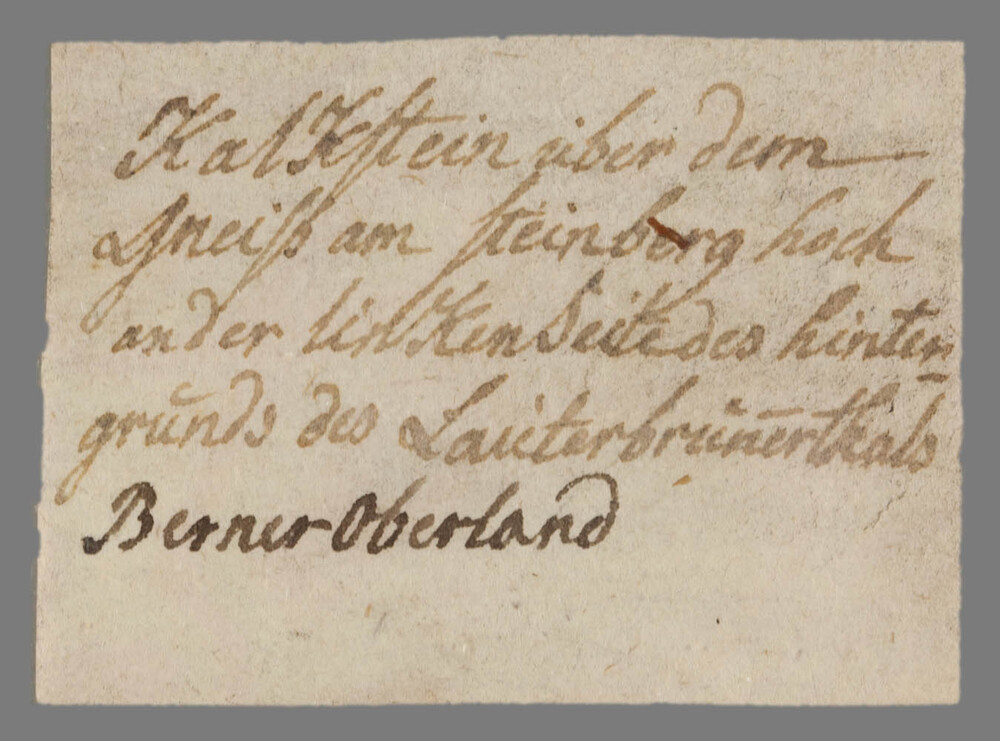 Kalkstein über dem
Gneiß am steinberg hoch
an der linken Seite des hinter
grunds des Lauterbrun̄erthals
Berner Oberland